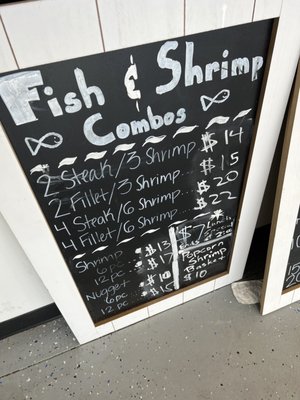 Fish & Shrimp
Combos
2 Steak/3 Shrimp... $14
2 Fillet/3 Shrimp... $15
4 Steak/6 Shrimp... $20
4 Fillet/6 Shrimp... $22
Shrimp
6 pc $13
12 pc $17
Nugget
6 pc $10
12 pc $15
$7 Lunch
Popcorn
Shrimp
Basket
$10